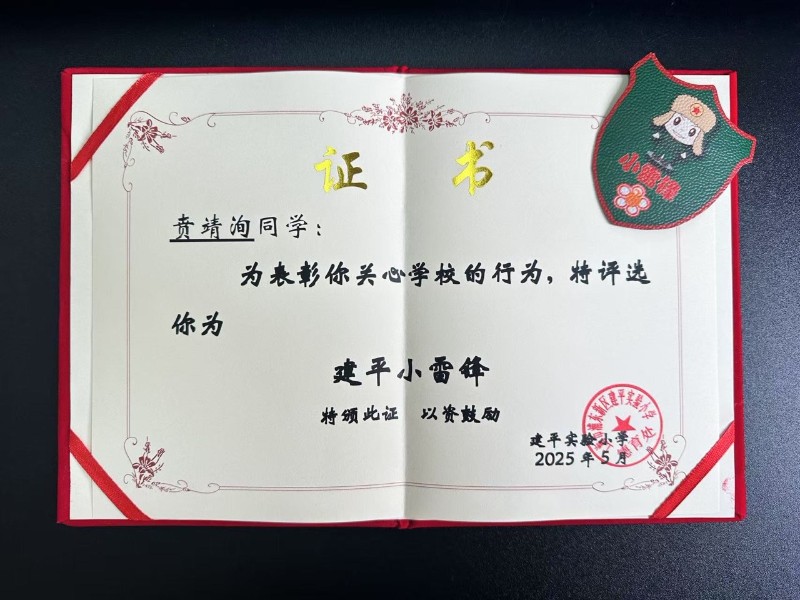 证书
贲靖洵同学：
为表彰你关心学校的行为，特评选
你为
建平小雷锋
特颁此证 以资鼓励
建平实验小学
2025年5月
浦东新区建平实验小学
德育处
小雷锋